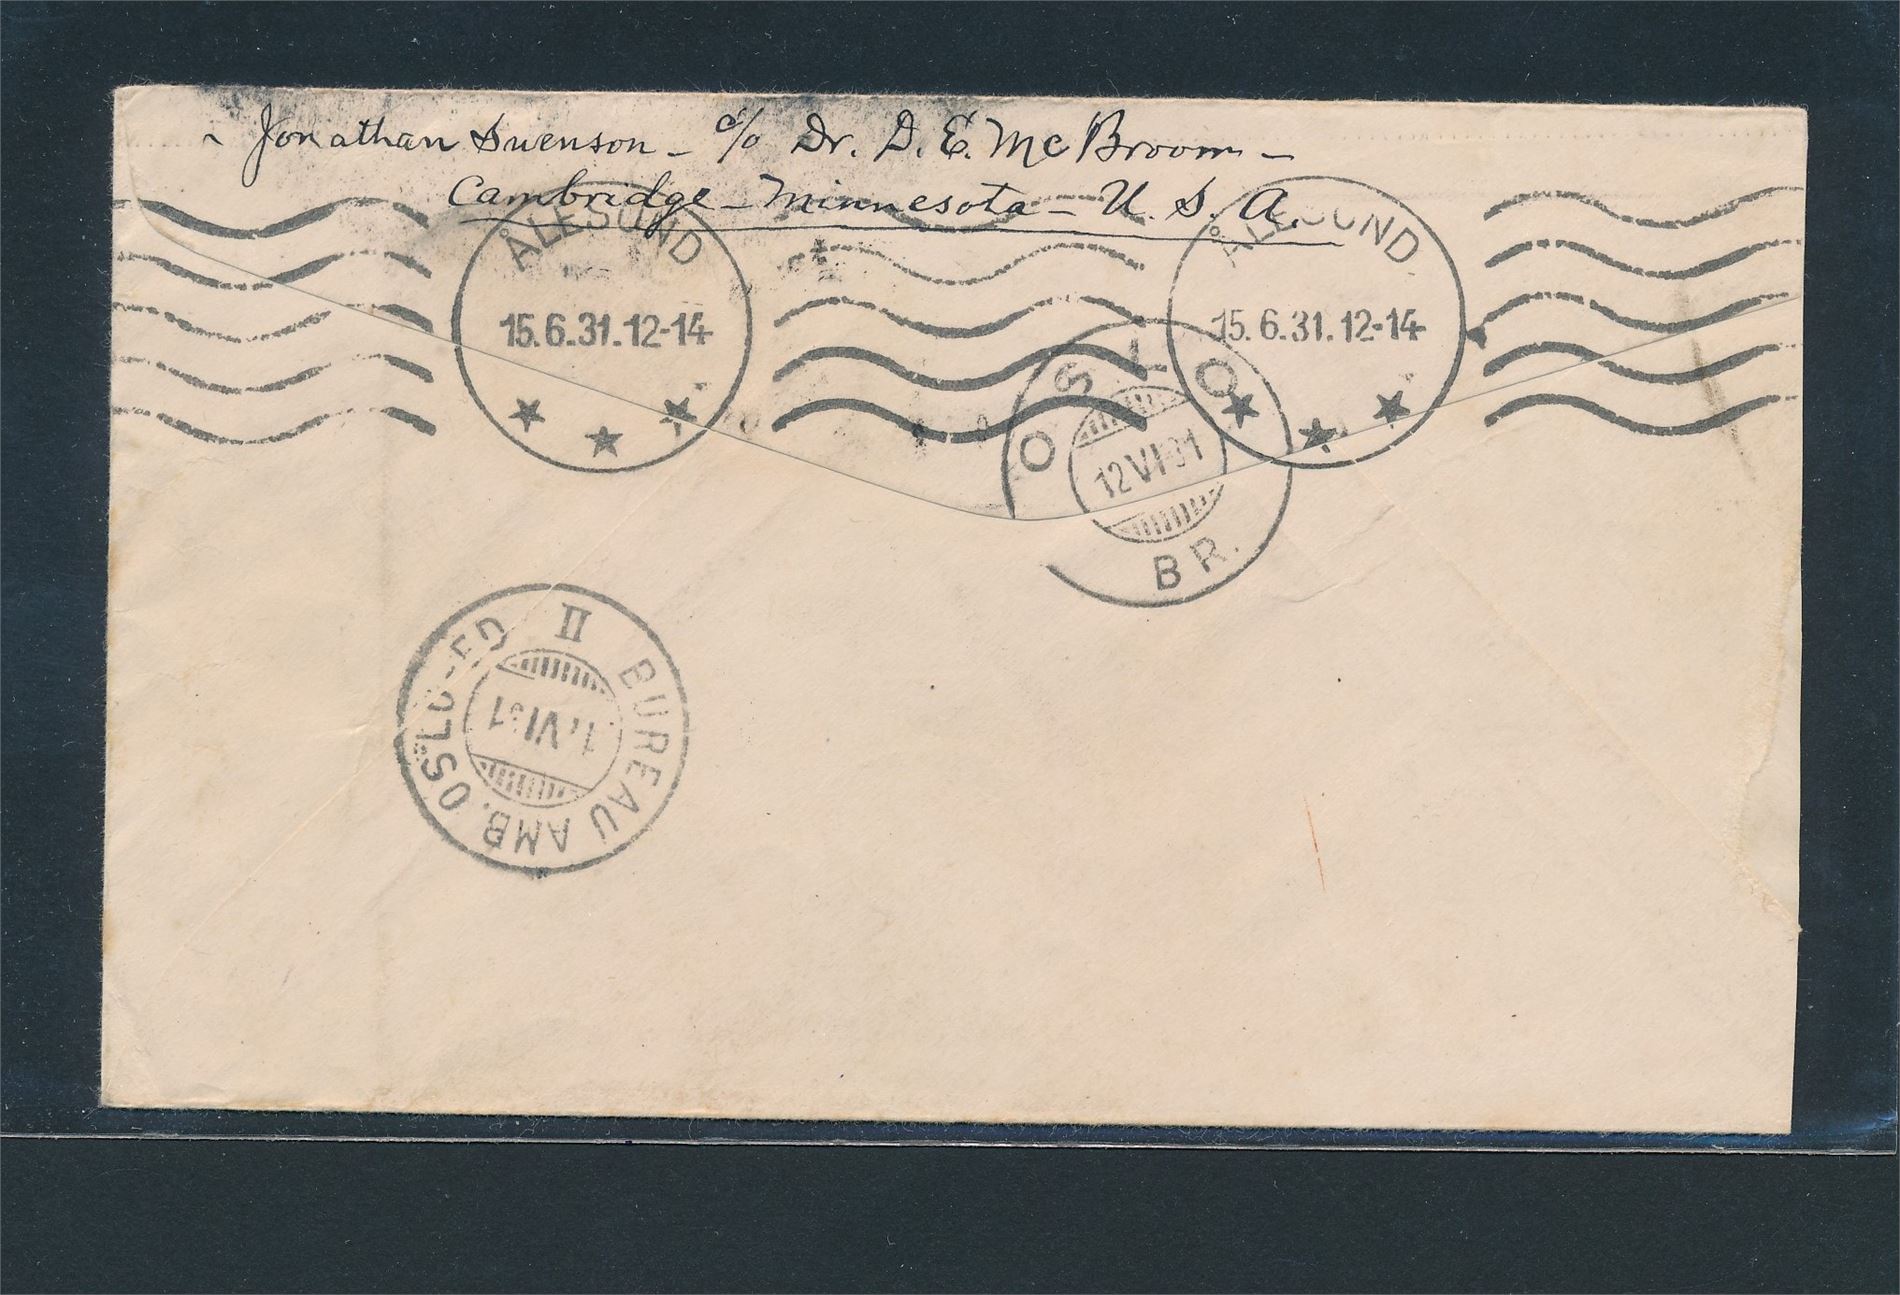 Jonathan Swenson - c/o Dr. D. E. McBroom -
Cambridge - Minnesota - U. S. A.
ÅLESUND
15.6.31.12-14
ÅLESUND
15.6.31.12-14
OSLO
12 VI 31
BR.
II
BUREAU AMB. OSLO-ED
VI 31